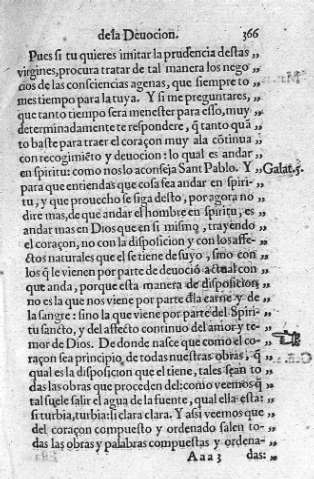 dela Deuocion. 366
Pues si tu quieres imitar la prudencia destas „
virgines, procura tratar de tal manera los nego „
cios de las consciencias agenas, que siempre to „
mes tiempo para la tuya. Y si me preguntares, „
que tanto tiempo será menester para esso, muy „
determinadamente te respondere, q̃ tanto quã „
to baste para traer el coraçon muy ala cõtinua „
con recogimiẽto y deuocion: lo qual es andar „
en spiritu: como nos lo aconseja Sant Pablo. Y „ Galat. 5.
para que entiendas que cosa sea andar en spiri- „
tu, y que prouecho se siga desto, por agora no „
dire mas, de que andar el hombre en spiritu, es „
andar mas en Dios que en si mismo, trayendo „
el coraçon, no con la disposicion y con los affe- „
ctos naturales que el se tiene de suyo, sino con „
los q̃ le vienen por parte de deuociõ actual con „
que anda, porque esta manera de disposicion „
no es la que nos viene por parte dla carne y de „
la sangre: sino la que viene por parte del Spiri- „
tu sancto, y del affecto continuo del amor y te- „
mor de Dios. De donde nasce que como el co- „
raçon sea principio de todas nuestras obras, q̃ „
qual es la disposicion que el tiene, tales sean to „
das las obras que proceden del: como veemos q̃ „
tal suele salir el agua de la fuente, qual ella esta: „
si turbia, turbia: si clara clara. Y assi veemos que „
del coraçon compuesto y ordenado salen to- „
das las obras y palabras compuestas y ordena- „
Aaa 3 das: